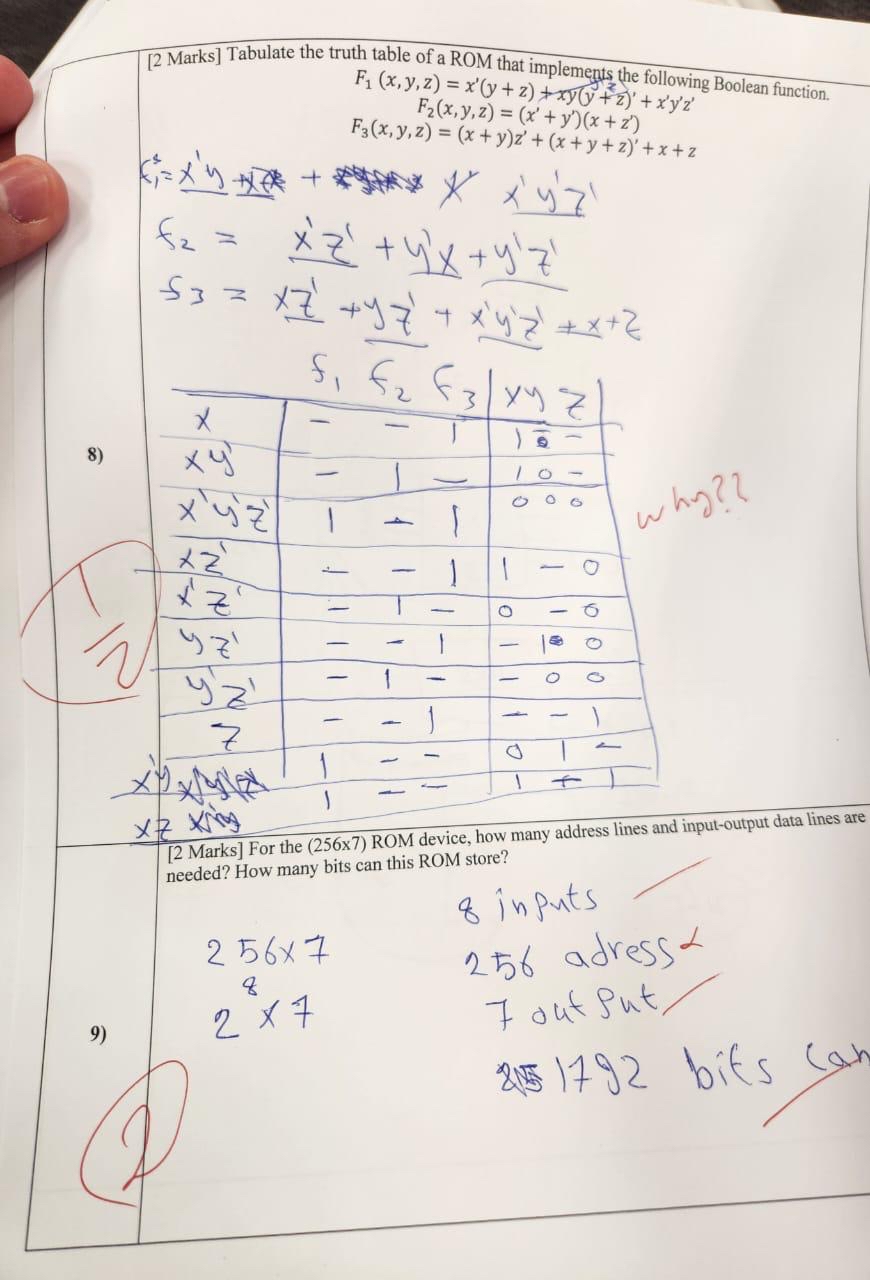 [2 Marks] Tabulate the truth table of a ROM that implements the following Boolean function.
F₁ (x, y, z) = x'(y + z) + xy(y + z)' + x'y'z'
y'z'
F₂(x, y, z) = (x' + y')(x + z')
F₃(x, y, z) = (x + y)z' + (x + y + z)' + x + z
x'y + x'y'z'
f₂ = x'z' + y'x + y'z'
f3 = xz' + yz' + x'y'z' + x + z
f₁ f₂ f₃ | x y z
8)
x - - 1 1 -
xy' - 1 - 1 0 -
x'y'z' 1 - 1 0 0 0
why??
xz' - - 1 1 - 0
x'z' - 1 - 0 - 0
yz' - - 1 - 1 0
y'z' - 1 - - 0 0
z - - 1 - - 1
x'y 1 - - 0 1 -
xz 1 - - 1 - 1
[2 Marks] For the (256x7) ROM device, how many address lines and input-output data lines are
needed? How many bits can this ROM store?
8 inputs
256x7
256 adress
9)
2⁸ x 7
7 output
1792 bits can
2